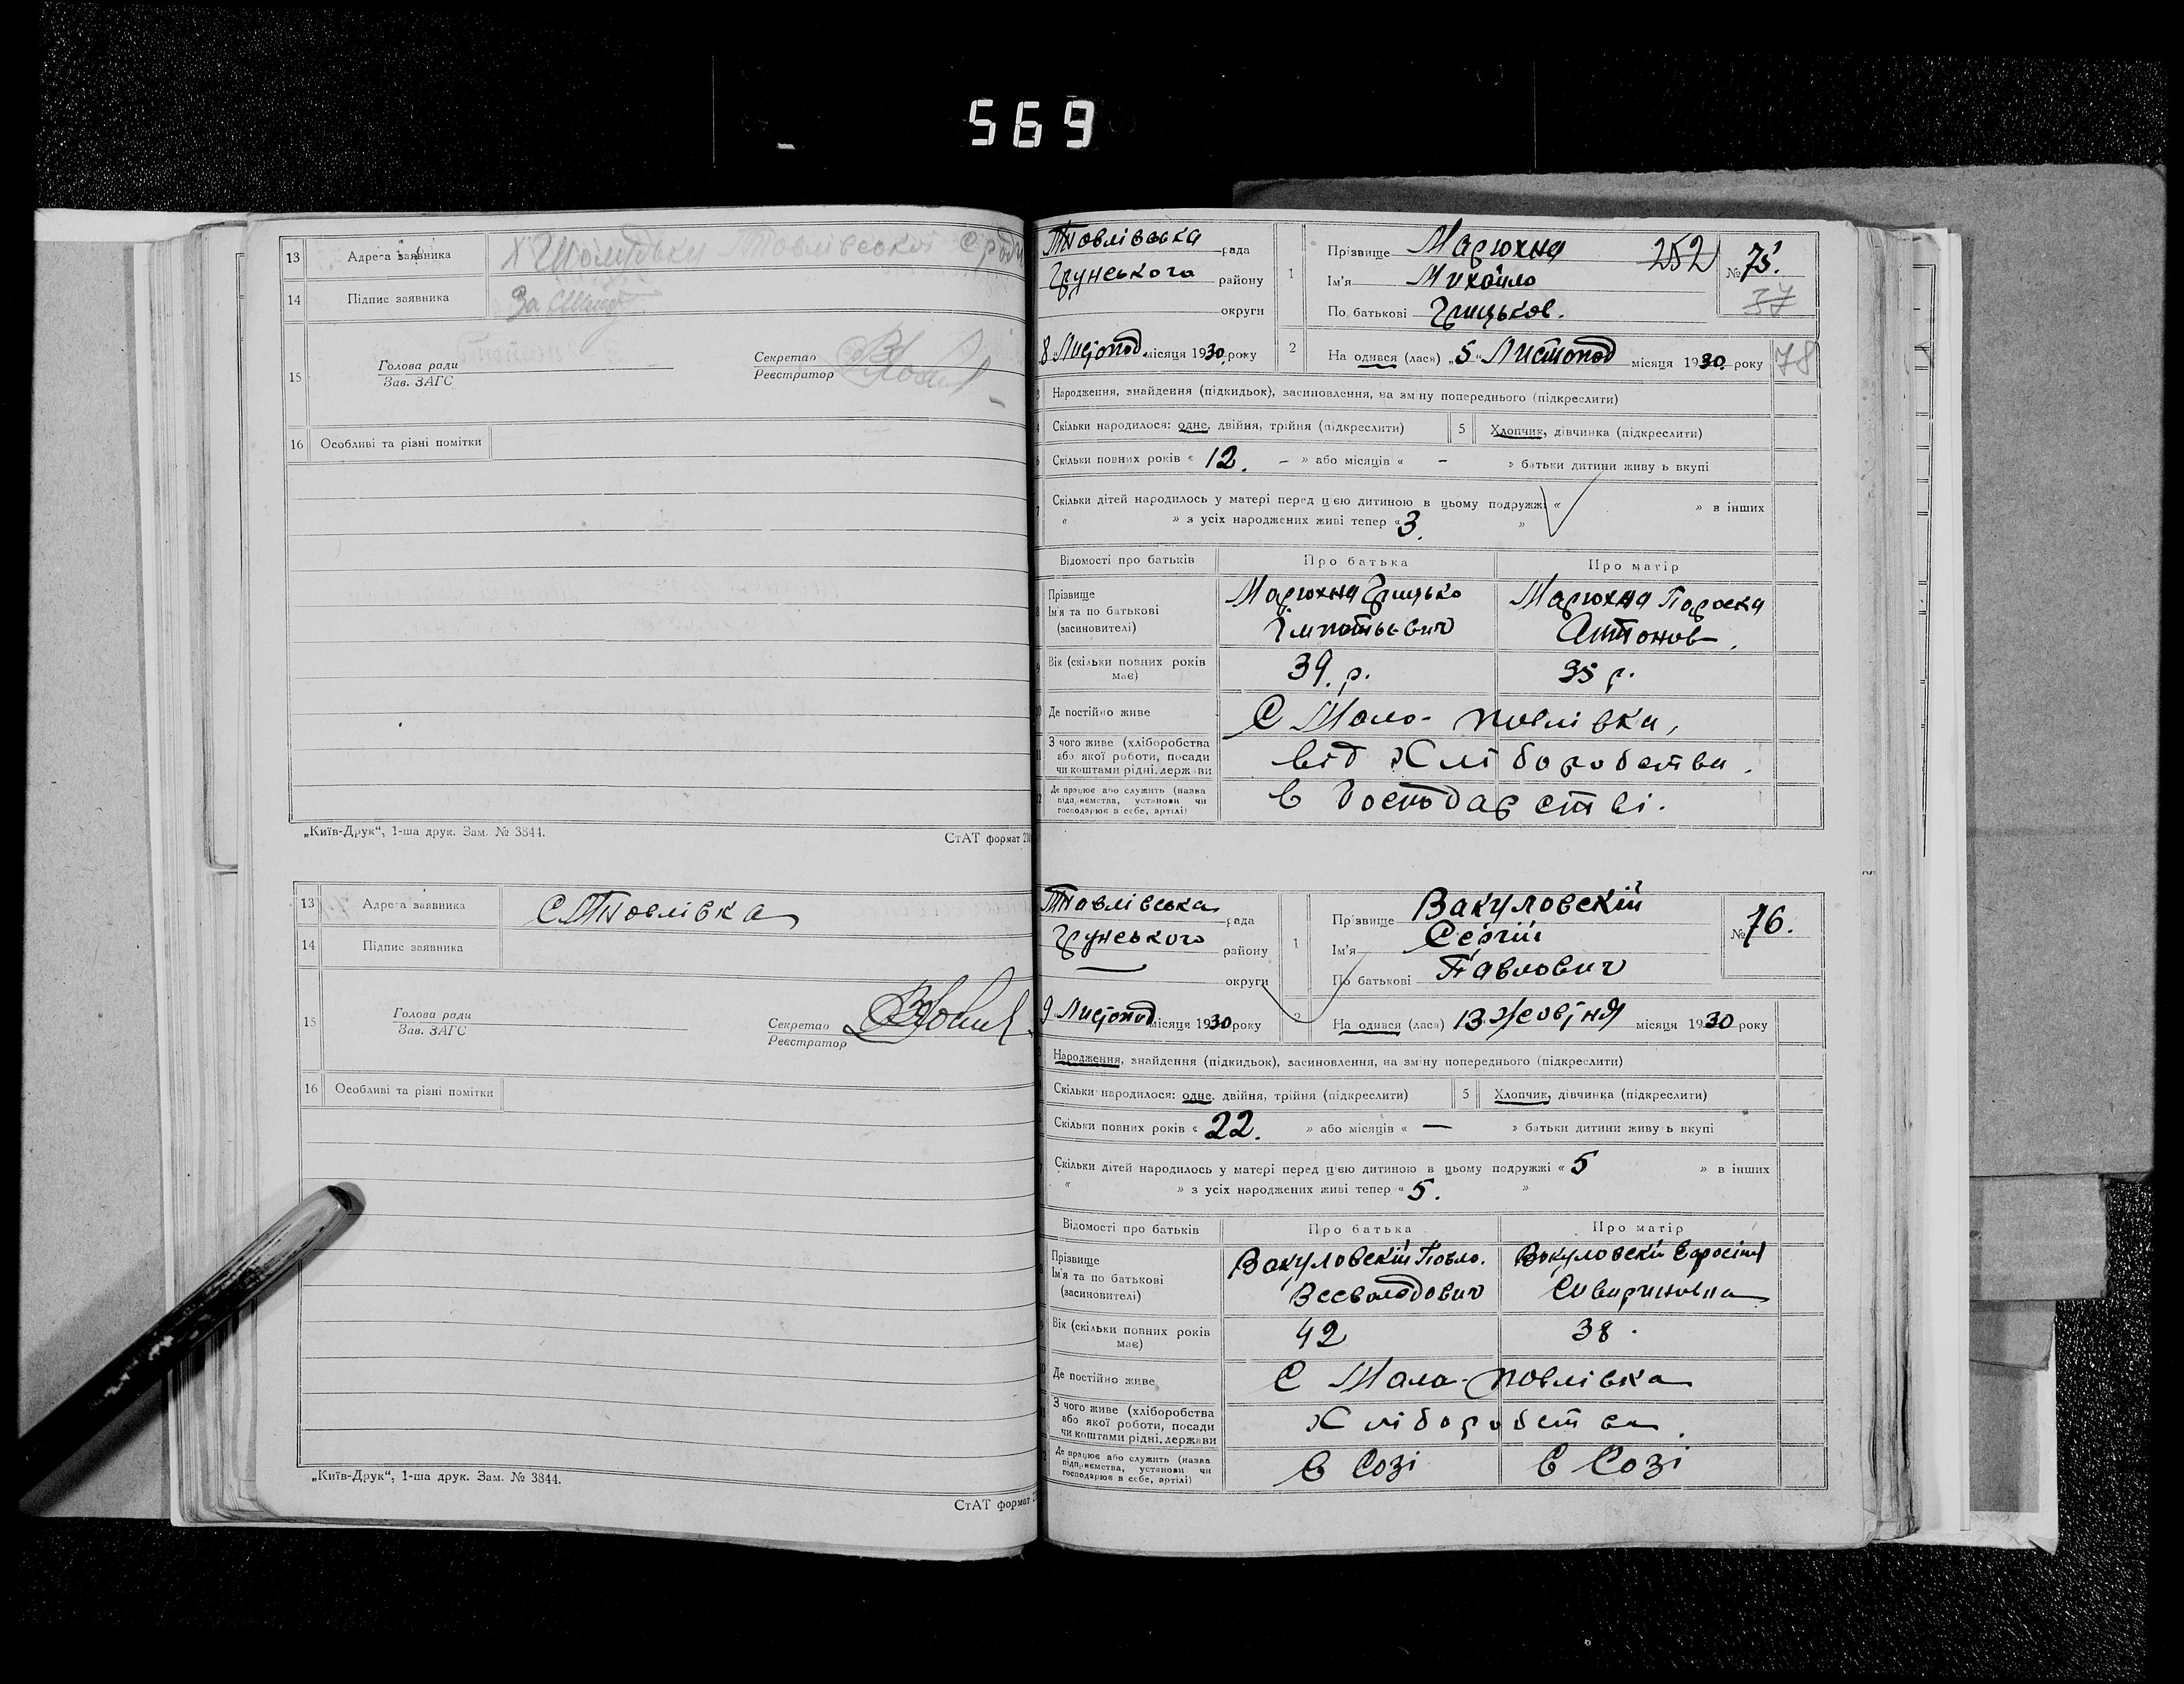 569
13 Адреса заявника
14 Підпис заявника За
15 Голова ради
Зав. ЗАГС
Секретар
Реєстратор
16 Особливі та різні помітки
„Київ-Друк“, 1-ша друк. Зам. № 3844.
СтАТ формат
13 Адреса заявника
14 Підпис заявника
15 Голова ради
Зав. ЗАГС
Секретар
Реєстратор
16 Особливі та різні помітки
„Київ-Друк“, 1-ша друк. Зам. № 3844.
СтАТ формат
рада
Грунського району
округи
8 Листопад місяця 1930 року
1 Прізвище Марюхна 252
Ім'я Михайло
По батькові Грицьков.
№ 75.
37
2 На одився (лася) „5“ Листопад місяця 1930. року 78
Народження, знайдення (підкидьок), засиновлення, на зміну попереднього (підкреслити)
Скільки народилося: одне, двійня, трійня (підкреслити) 5 Хлопчик, дівчинка (підкреслити)
Скільки повних років « 12. – » або місяців « – » батьки дитини живу ь вкупі
Скільки дітей народилось у матері перед цією дитиною в цьому подружжі « » в інших
« » з усіх народжених живі тепер « 3. »
Відомості про батьків Про батька Про матір
Прізвище
Ім'я та по батькові
(засиновителі)
Марюхна Грицько
Марюхна Параска
Антонов.
Вік (скільки повних років має) 39. р. 35 р.
Де постійно живе С Мало-павлівка,
З чого живе (хліборобства
або якої роботи, посади
чи коштами рідні, держави
від хліборобства.
Де працює або служить (назва
підприємства, установи чи
господарює в себе, артілі)
в господарстві.
рада
Грунського району
округи
9 Листопад місяця 1930 року
1 Прізвище Вакуловскій
Ім'я Сергій
По батькові Павлович
№ 76.
2 На одився (лася) 13 жовтня місяця 1930 року
Народження, знайдення (підкидьок), засиновлення, на зміну попереднього (підкреслити)
Скільки народилося: одне, двійня, трійня (підкреслити) 5 Хлопчик, дівчинка (підкреслити)
Скільки повних років « 22. » або місяців « — » батьки дитини живу ь вкупі
Скільки дітей народилось у матері перед цією дитиною в цьому подружжі « 5 » в інших
« » з усіх народжених живі тепер « 5. »
Відомості про батьків Про батька Про матір
Прізвище
Ім'я та по батькові
(засиновителі)
Вакуловскій Павло.
Всеволодович
Вакуловскій
Вік (скільки повних років має) 42 38.
Де постійно живе С Мала-павлівка
З чого живе (хліборобства
або якої роботи, посади
чи коштами рідні, держави
хліборобства.
Де працює або служить (назва
підприємства, установи чи
господарює в себе, артілі)
в Созі в Созі